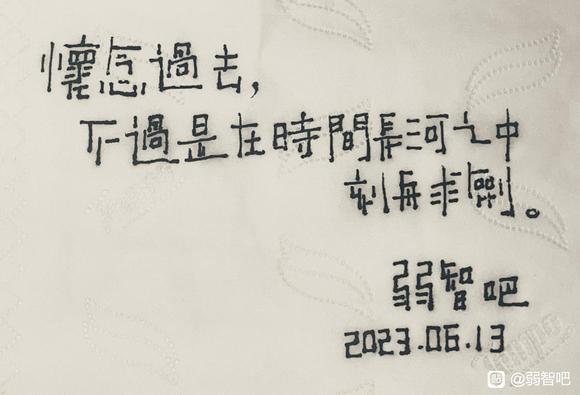 懷念過去，
不過是在時間長河之中
刻舟求劍。
弱智吧
2023.06.13
貼 @弱智吧